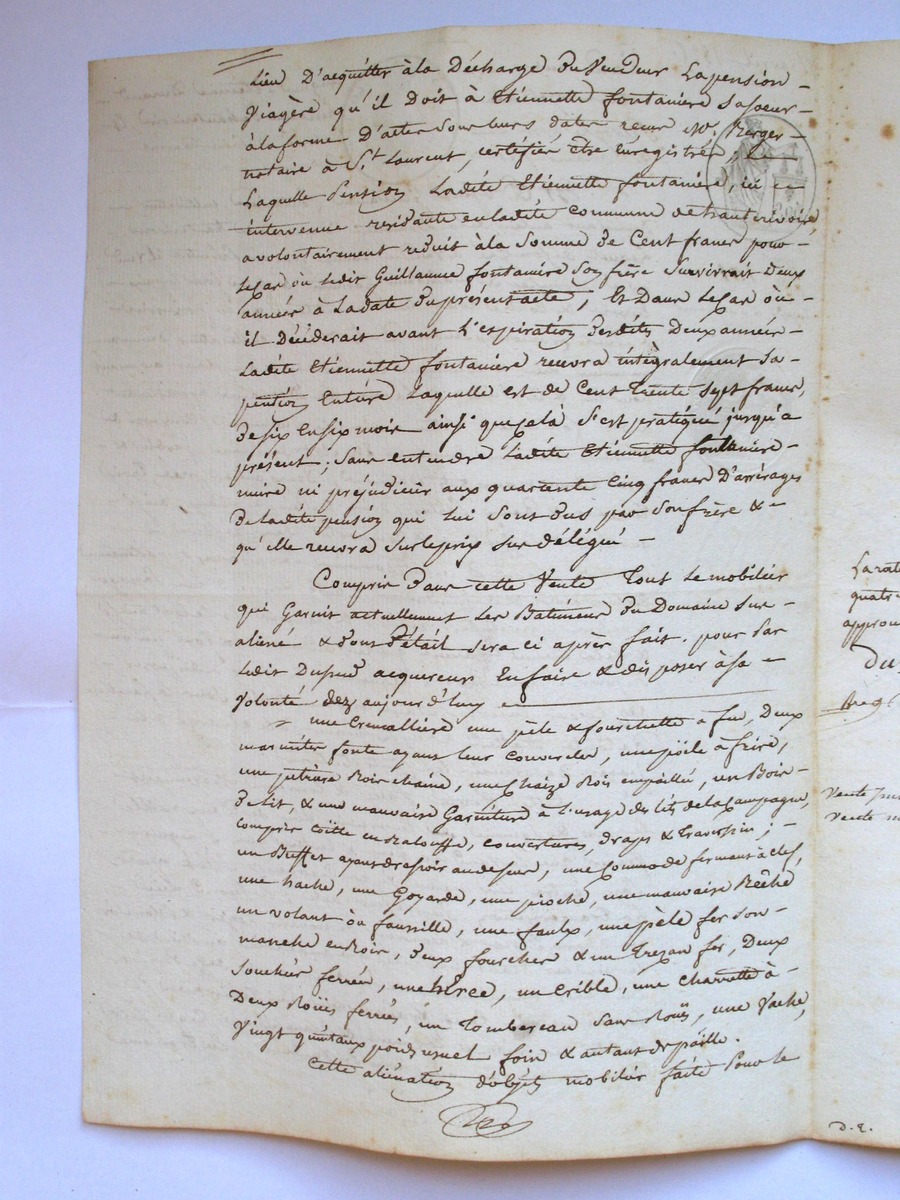 Lieu D'acquitter à la Décharge du Vendeur La pension
Viagère qu'il doit à Etiennette fontanière sa soeur
à la forme D'actes sous leurs dates reçus Me. Berger
notaire à St. Laurent, certifiée être Enregistrés, Le
Laquelle Pension Ladite Etiennette fontanière, ici
intervenue residante en ladite commune de haut rivoire
a volontairement reduit à la Somme De Cent francs pour
Le Cas où Ledit Guillaume fontanière Son frère Survivrait Deux
années à La date du présent acte; Et Dans Le Cas où
il Décèderait avant L'expiration Desdites Deux années
Ladite Etiennette fontanière recevra intègralement Sa
pention Entière Laquelle est de Cent Trente Sept francs,
De six En six mois ainsi que Cela S'est pratiqué jusqu'a
présent; Sans entendre Ladite Etiennette fontanière
nuire ni préjudicier aux quarente Cinq francs D'arrérages
De Ladite pension qui Lui Sont Dus par Son frère &
qu'elle recevra Sur le prix Sus délégué
Compris Dans cette Vente Tout Le mobilier
qui Garnit actuellement Les Batimens Du Domaine Sus
aliené & Dont D'état sera ci après fait. pour Par
Ledit acquereur En faire & disposer à Sa
Volonté dez aujourd'huy
une Cremallière une pèle & fourchette à feu, Deux
marmites fonte ayans Leur Couvercles, une poële à frire,
une pétrière Bois chaine, une Chaize Bois empaillée, un Bois
De Lit, & une mauvaise Garniture à L'uzage des lits de la Campagne,
Compris Coëtte en Balouffe, Couvertures, Draps & Traverssin;
un Buffet ayant dressoir au dessus, une Commode fermant à Clef,
une hache, une Goyarde, une pioche, une mauvaise Bêche
un volant ou faussille, une faulx, une pèle fer Son
manche en Bois, Deux fourches & un Trezan fer, Deux
Souchées ferrées, une hêrce, un Crible, une Charrette à
Deux Roües ferrées, un Tombereau Sans Roües, une Vache,
Vingt quintaux poids usuel foin & autant de paille.
Cette aliénation d'objets mobiliers faite Pour le
quatr
approu
Du
Vente
Vente m
D. E.